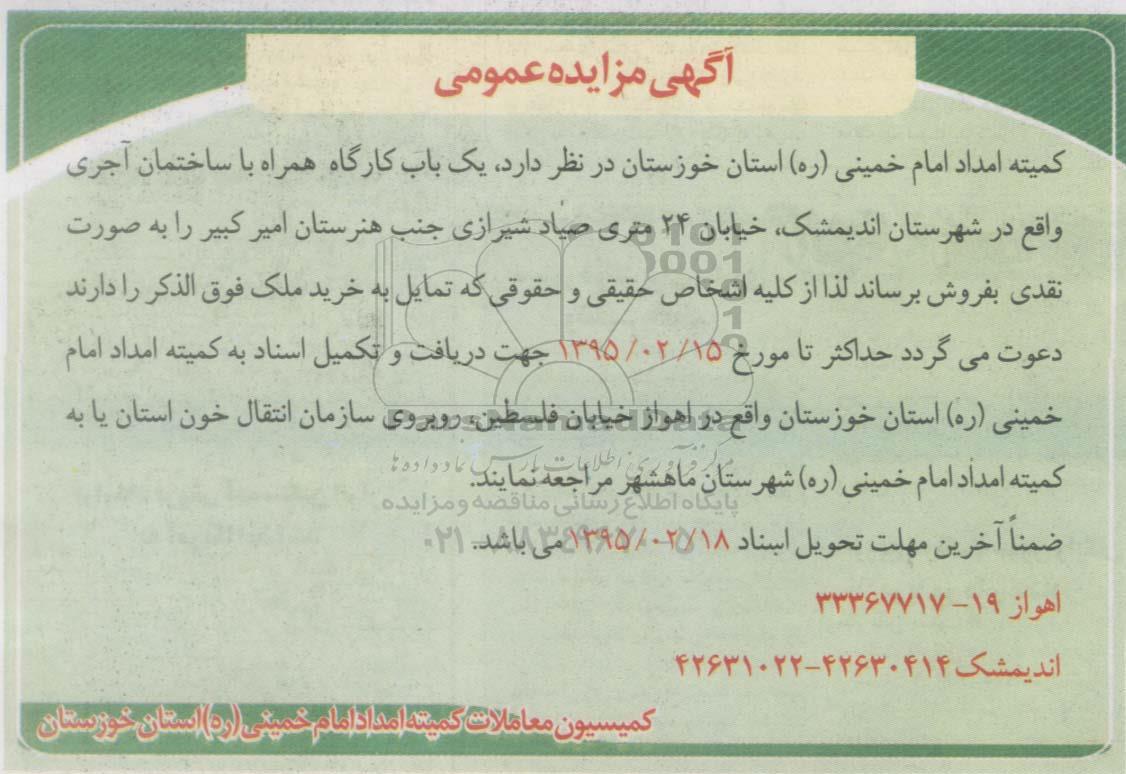 آگهی مزایده عمومی
کمیته امداد امام خمینی (ره) استان خوزستان در نظر دارد، یک باب کارگاه همراه با ساختمان آجری
واقع در شهرستان اندیمشک، خیابان ۲۴ متری صیاد شیرازی جنب هنرستان امیر کبیر را به صورت
نقدی بفروش برساند لذا از کلیه اشخاص حقیقی و حقوقی که تمایل به خرید ملک فوق الذکر را دارند
دعوت می گردد حداکثر تا مورخ ۱۳۹۵/۰۲/۱۵ جهت دریافت و تکمیل اسناد به کمیته امداد امام
خمینی (ره) استان خوزستان واقع در اهواز خیابان فلسطین، روبروی سازمان انتقال خون استان یا به
کمیته امداد امام خمینی (ره) شهرستان ماهشهر مراجعه نمایند.
ضمناً آخرین مهلت تحویل اسناد ۱۳۹۵/۰۲/۱۸ می باشد.
اهواز ۱۹- ۳۳۳۶۷۷۱۷
اندیمشک ۴۲۶۳۰۴۱۴-۴۲۶۳۱۰۲۲
کمیسیون معاملات کمیته امداد امام خمینی (ره) استان خوزستان
مرکز فرآوری اطلاعات پارس نماد داده ها
پایگاه اطلاع رسانی مناقصه و مزایده